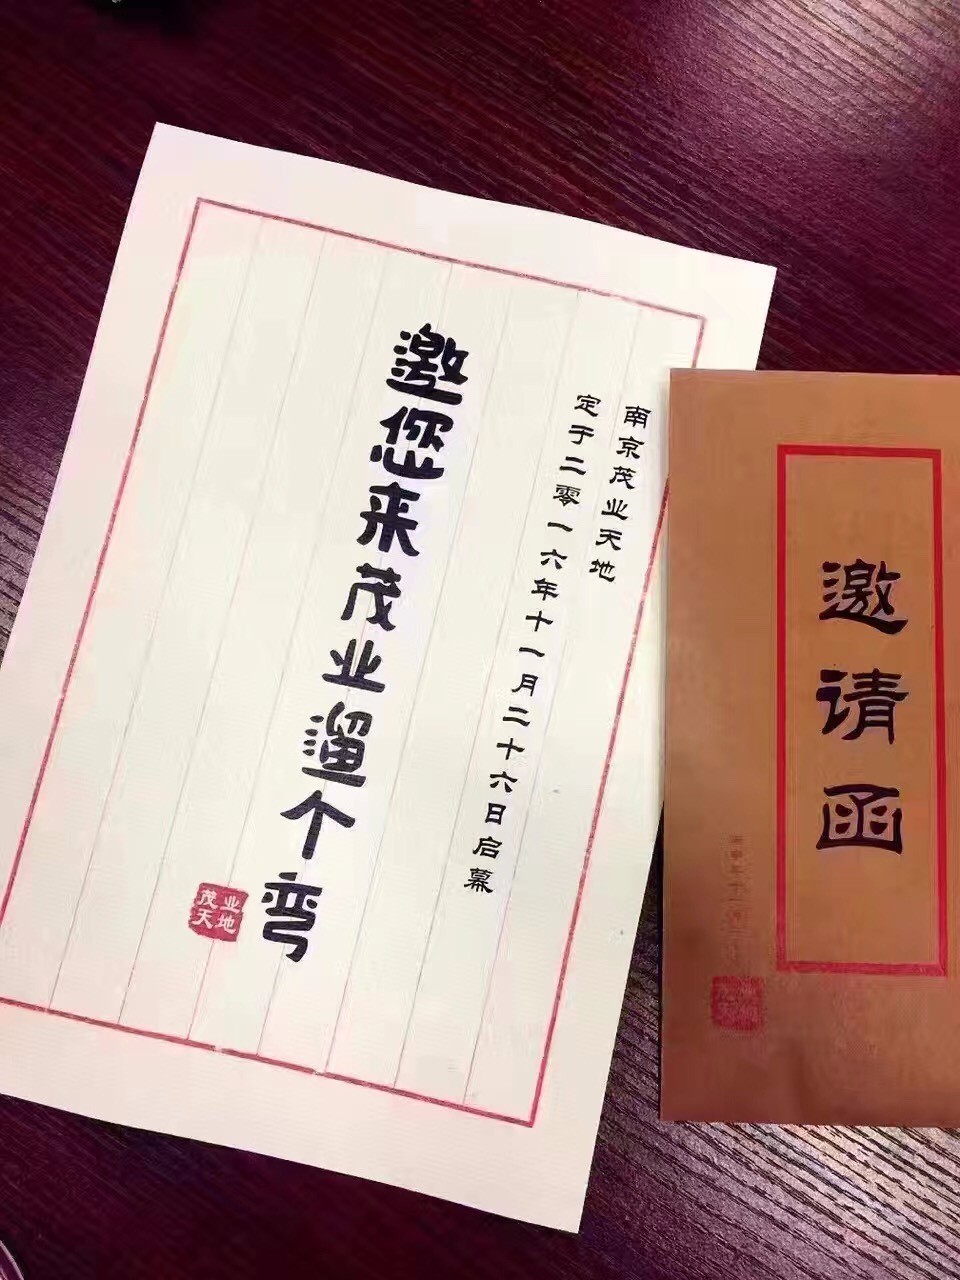 南京茂业天地
定于二零一六年十一月二十六日启幕
邀您来茂业遛个弯
茂业
天地
邀请函